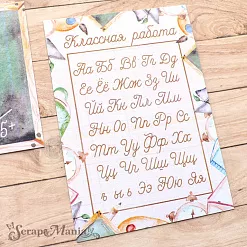 Классная работа
Аа Бб Вв Гг Дд
Ее Ёё Жж Зз Ии
Йй Кк Лл Мм
Нн Оо Пп Рр Сс
Тт Уу Фф Хх
Цц Чч Шш Щщ
ъ ы ь Ээ Юю Яя
5+
ScrapMania